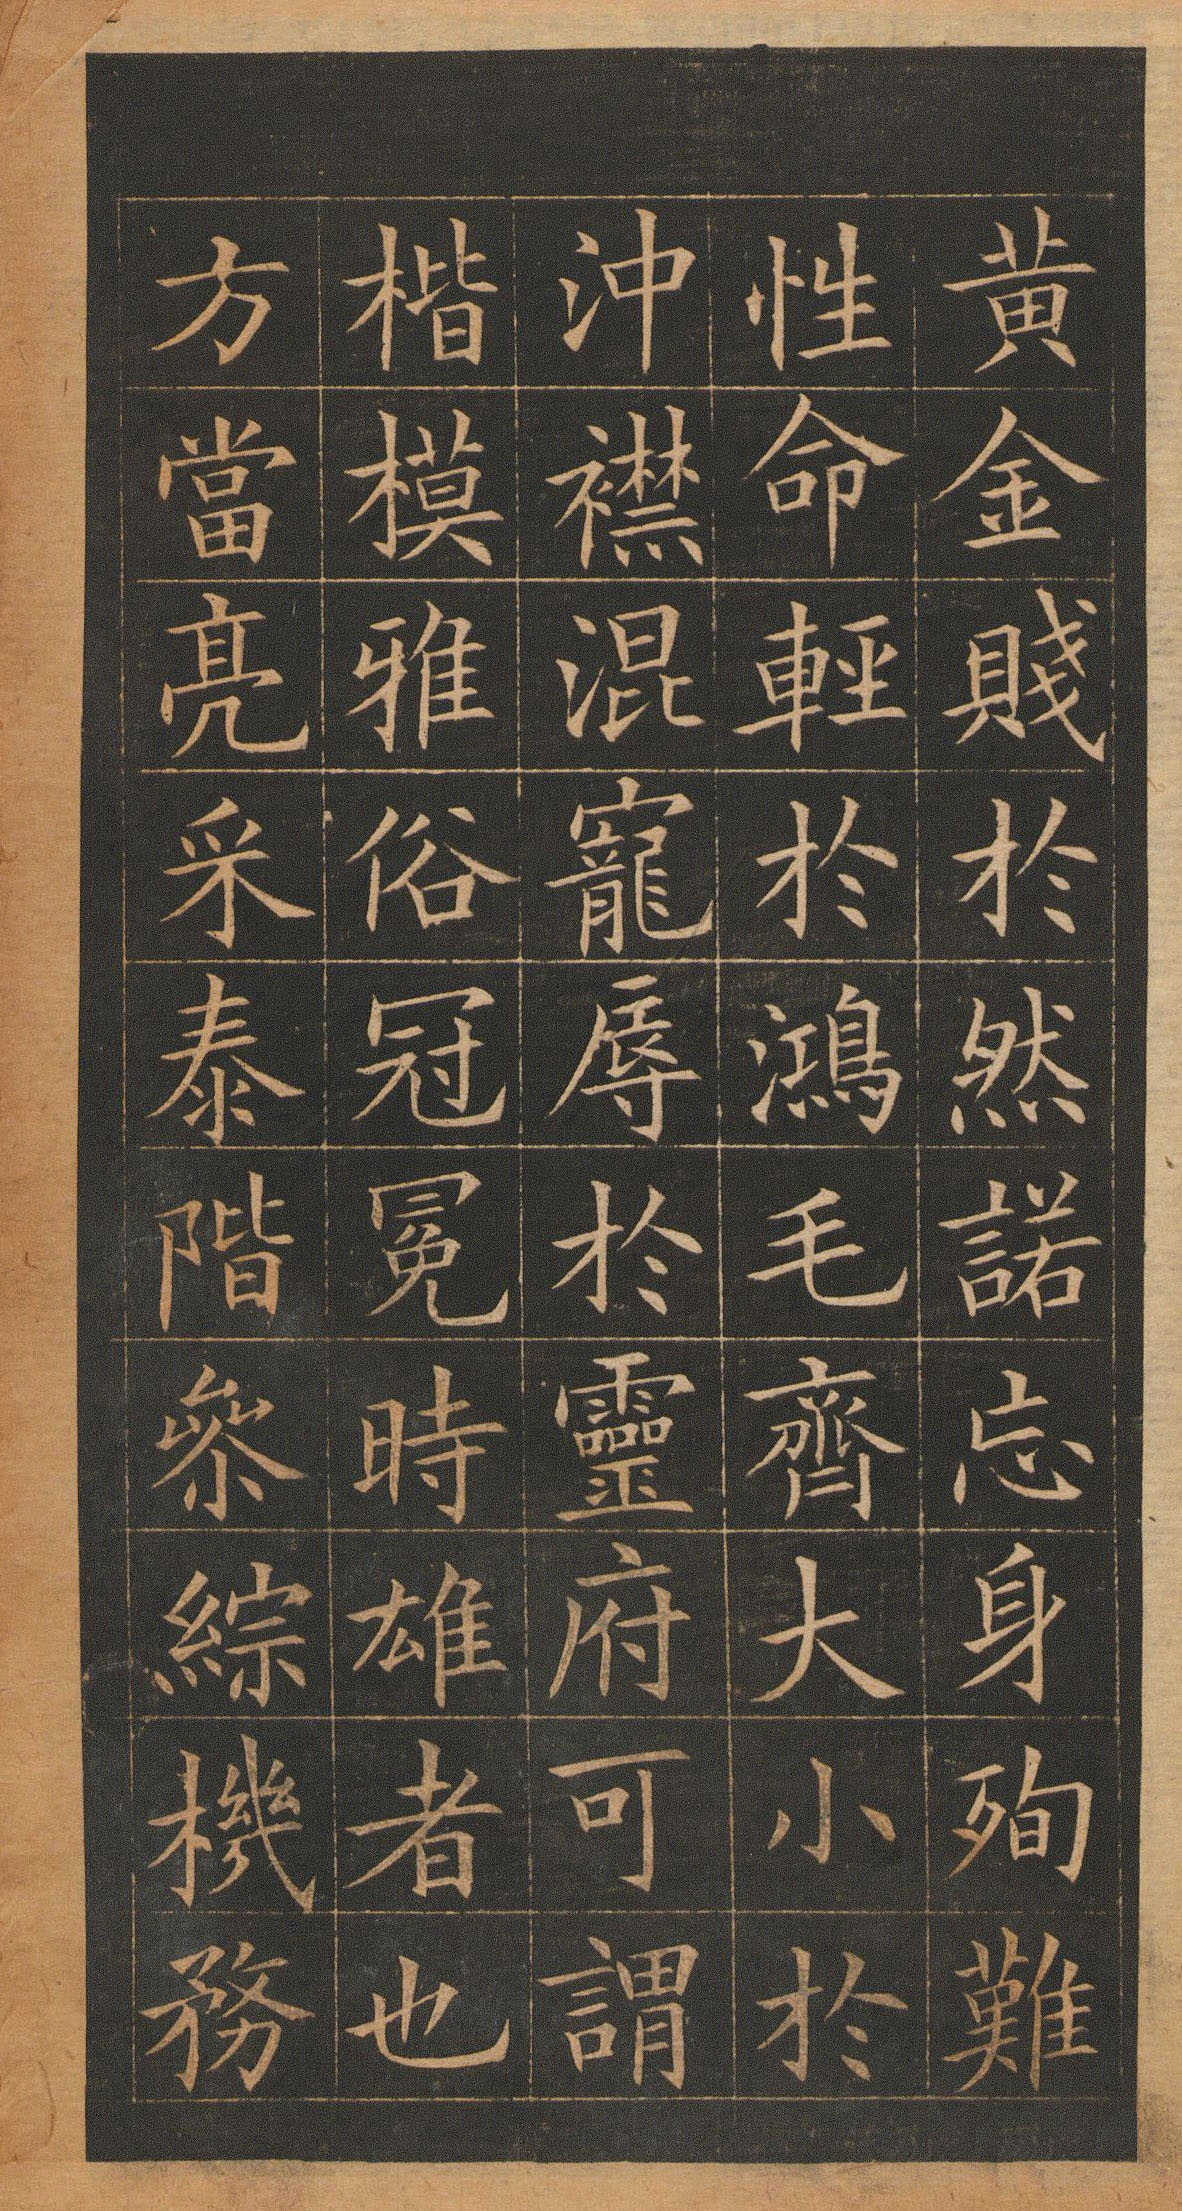 黄金賤於然諾忘身殉難
性命輕於鴻毛齊大小於
沖襟混寵辱於靈府可謂
楷模雅俗冠冕時雄者也
方當亮采泰階參綜機務